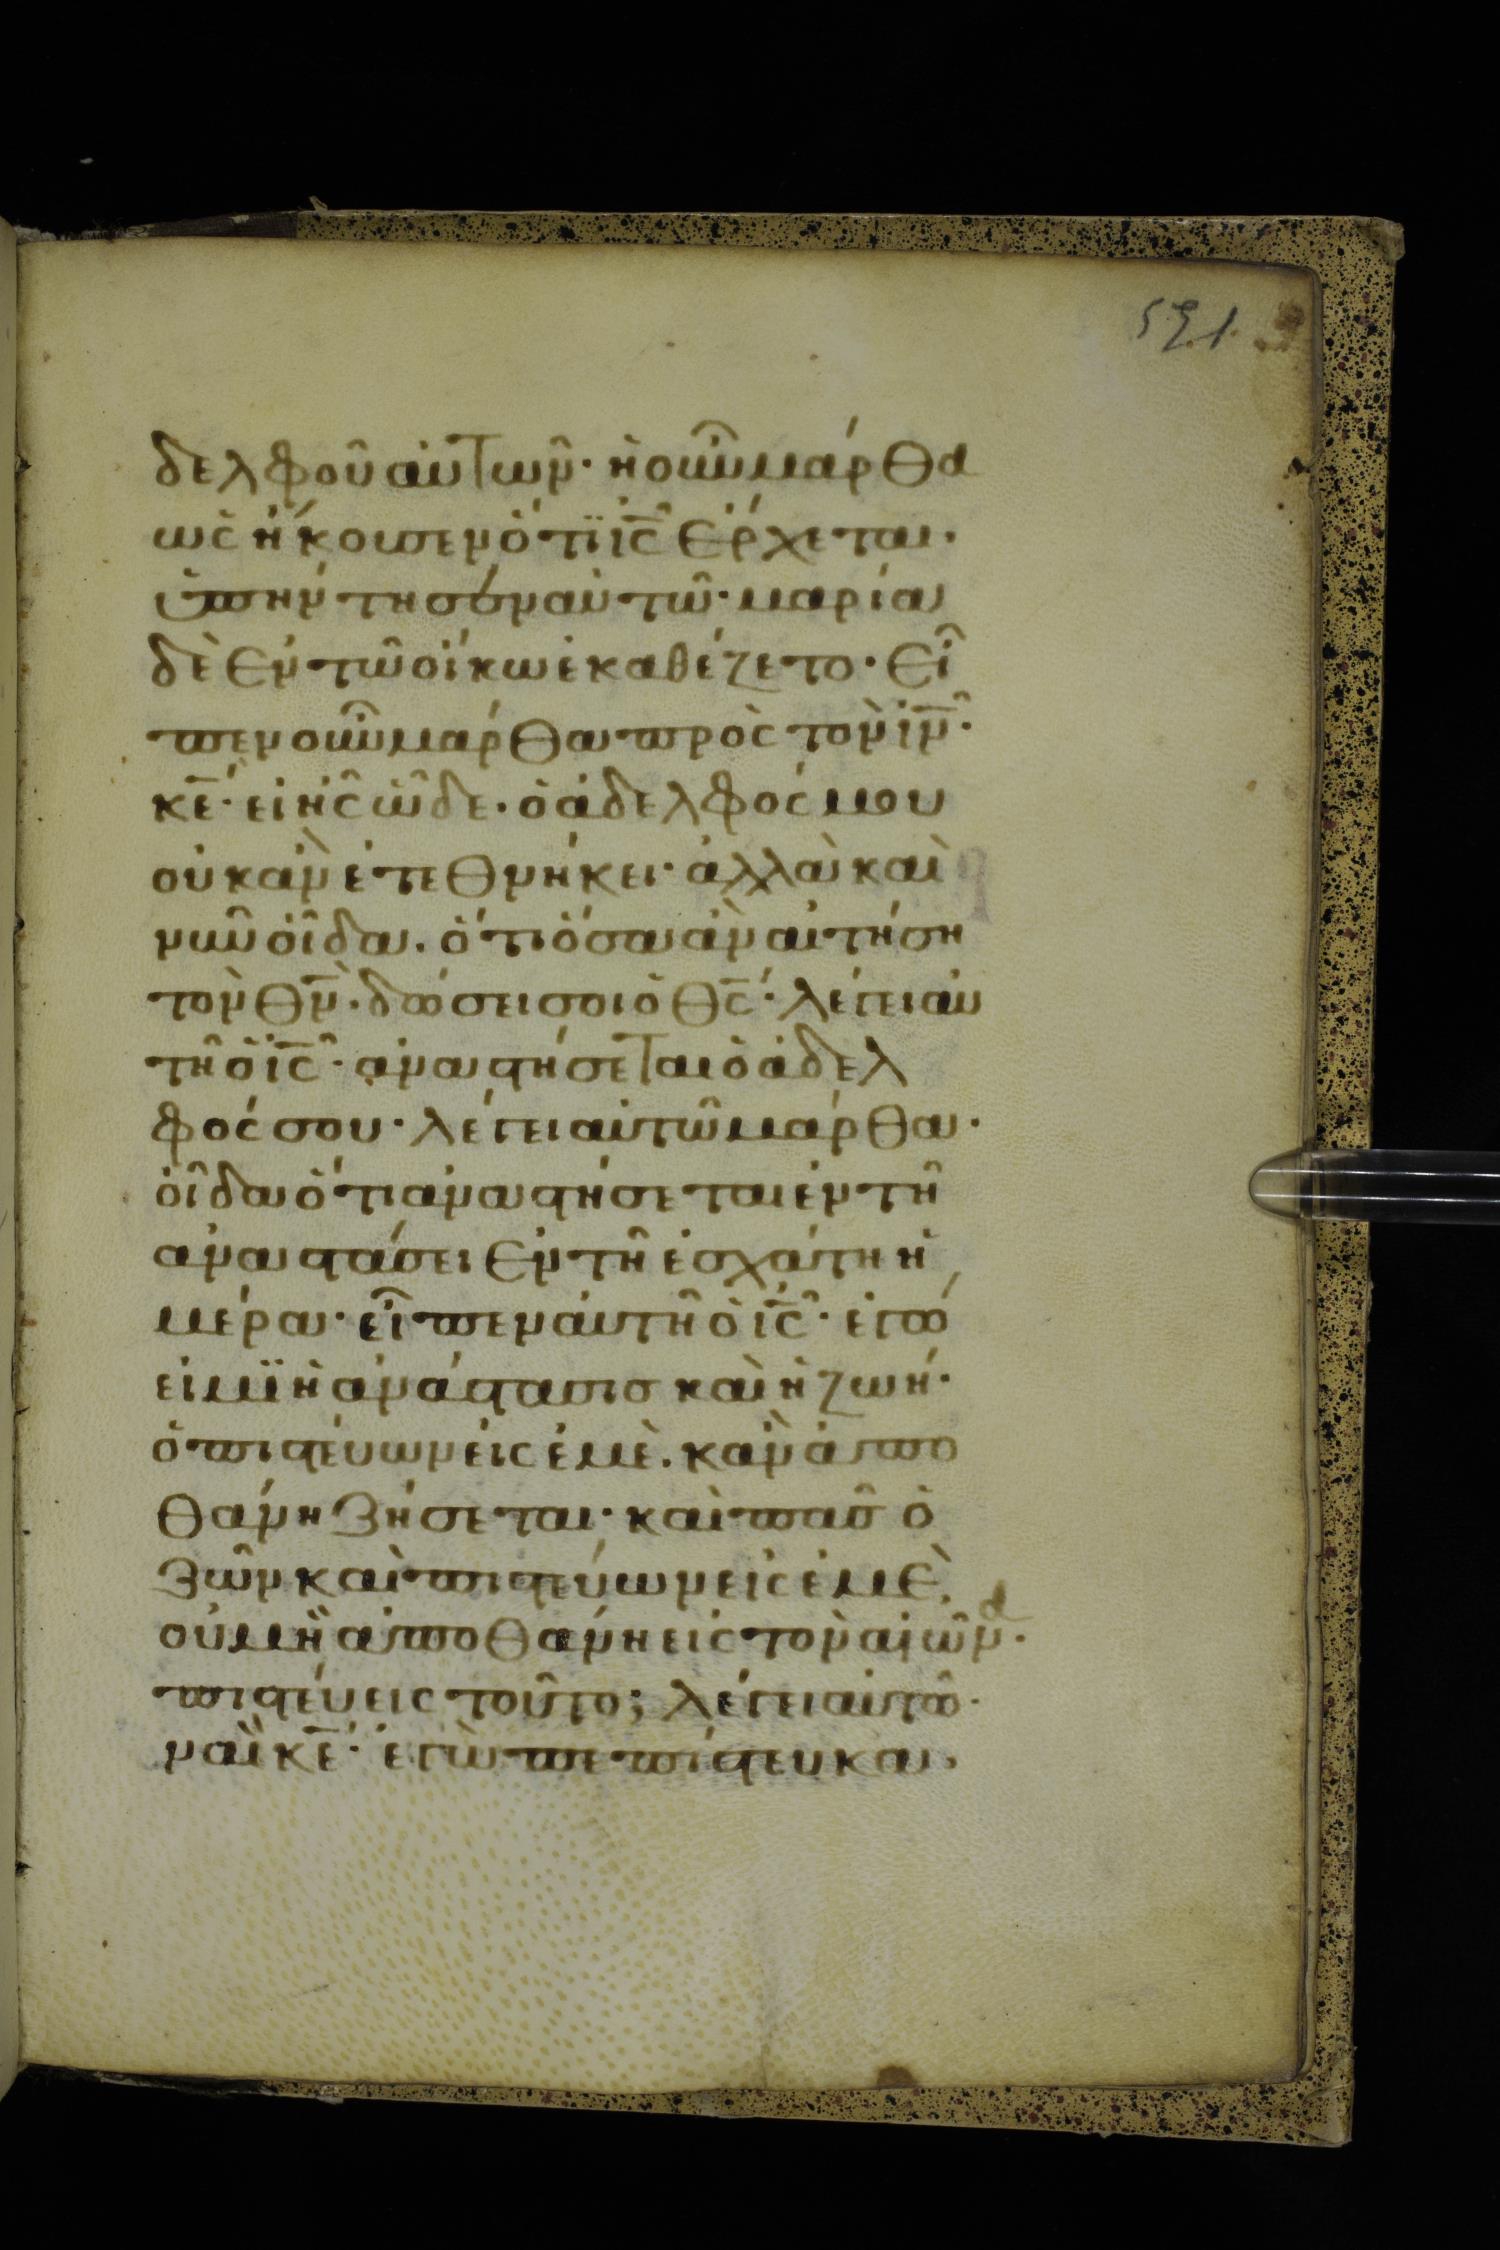 δελφοῦ αὐτῶν· ἡ οὖν μάρθα
ὡς ἤκουσεν ὅτϊ ἰς̅ ἔρχεται.
ὑπήντησεν αὐτῶ· μαρία
δὲ ἐν τῶ οἴκω ἐκαθέζετο· εἶ
πεν οὖν μάρθα πρὸς τὸν ἰν̅·
κε̅· εἰ ἦς ὧδε. ὁ ἀδελφός μου
οὐκ ἂν ἐτεθνήκει· ἀλλὰ καὶ
νῦν οἶδα. ὅτι ὅσα ἂν αἰτήση
τὸν θν̅· δώσει σοι ὁ θς̅· λέγει αὐ
τῆ ὁ ἰς̅· ἀναστήσεται ὁ ἀδελ
φός σου· λέγει αὐτῶ μάρθα·
οἶδα ὅτι ἀναστήσεται ἐν τῆ
ἀναστάσει ἐν τῆ ἐσχάτη ἡ
μέρα· εἶπεν αὐτῆ ὁ ἰς̅· ἐγώ
εἰμϊ ἡ ἀνάστασισ καὶ ἡ ζωή·
ὁ πιστέυων εἰς ἐμὲ. κἂν ἀπο
θάνη ζήσεται· καὶ πᾶσ ὁ
ζῶν καὶ πιστέυων εἰς ἐμὲ,
οὐ μὴ ἀποθάνη εἰς τὸν αἰῶνα·
πιστέυεις τοῦτο; λέγει αὐτῶ·
ναὶ κε̅· ἐγὼ πεπίστευκα.